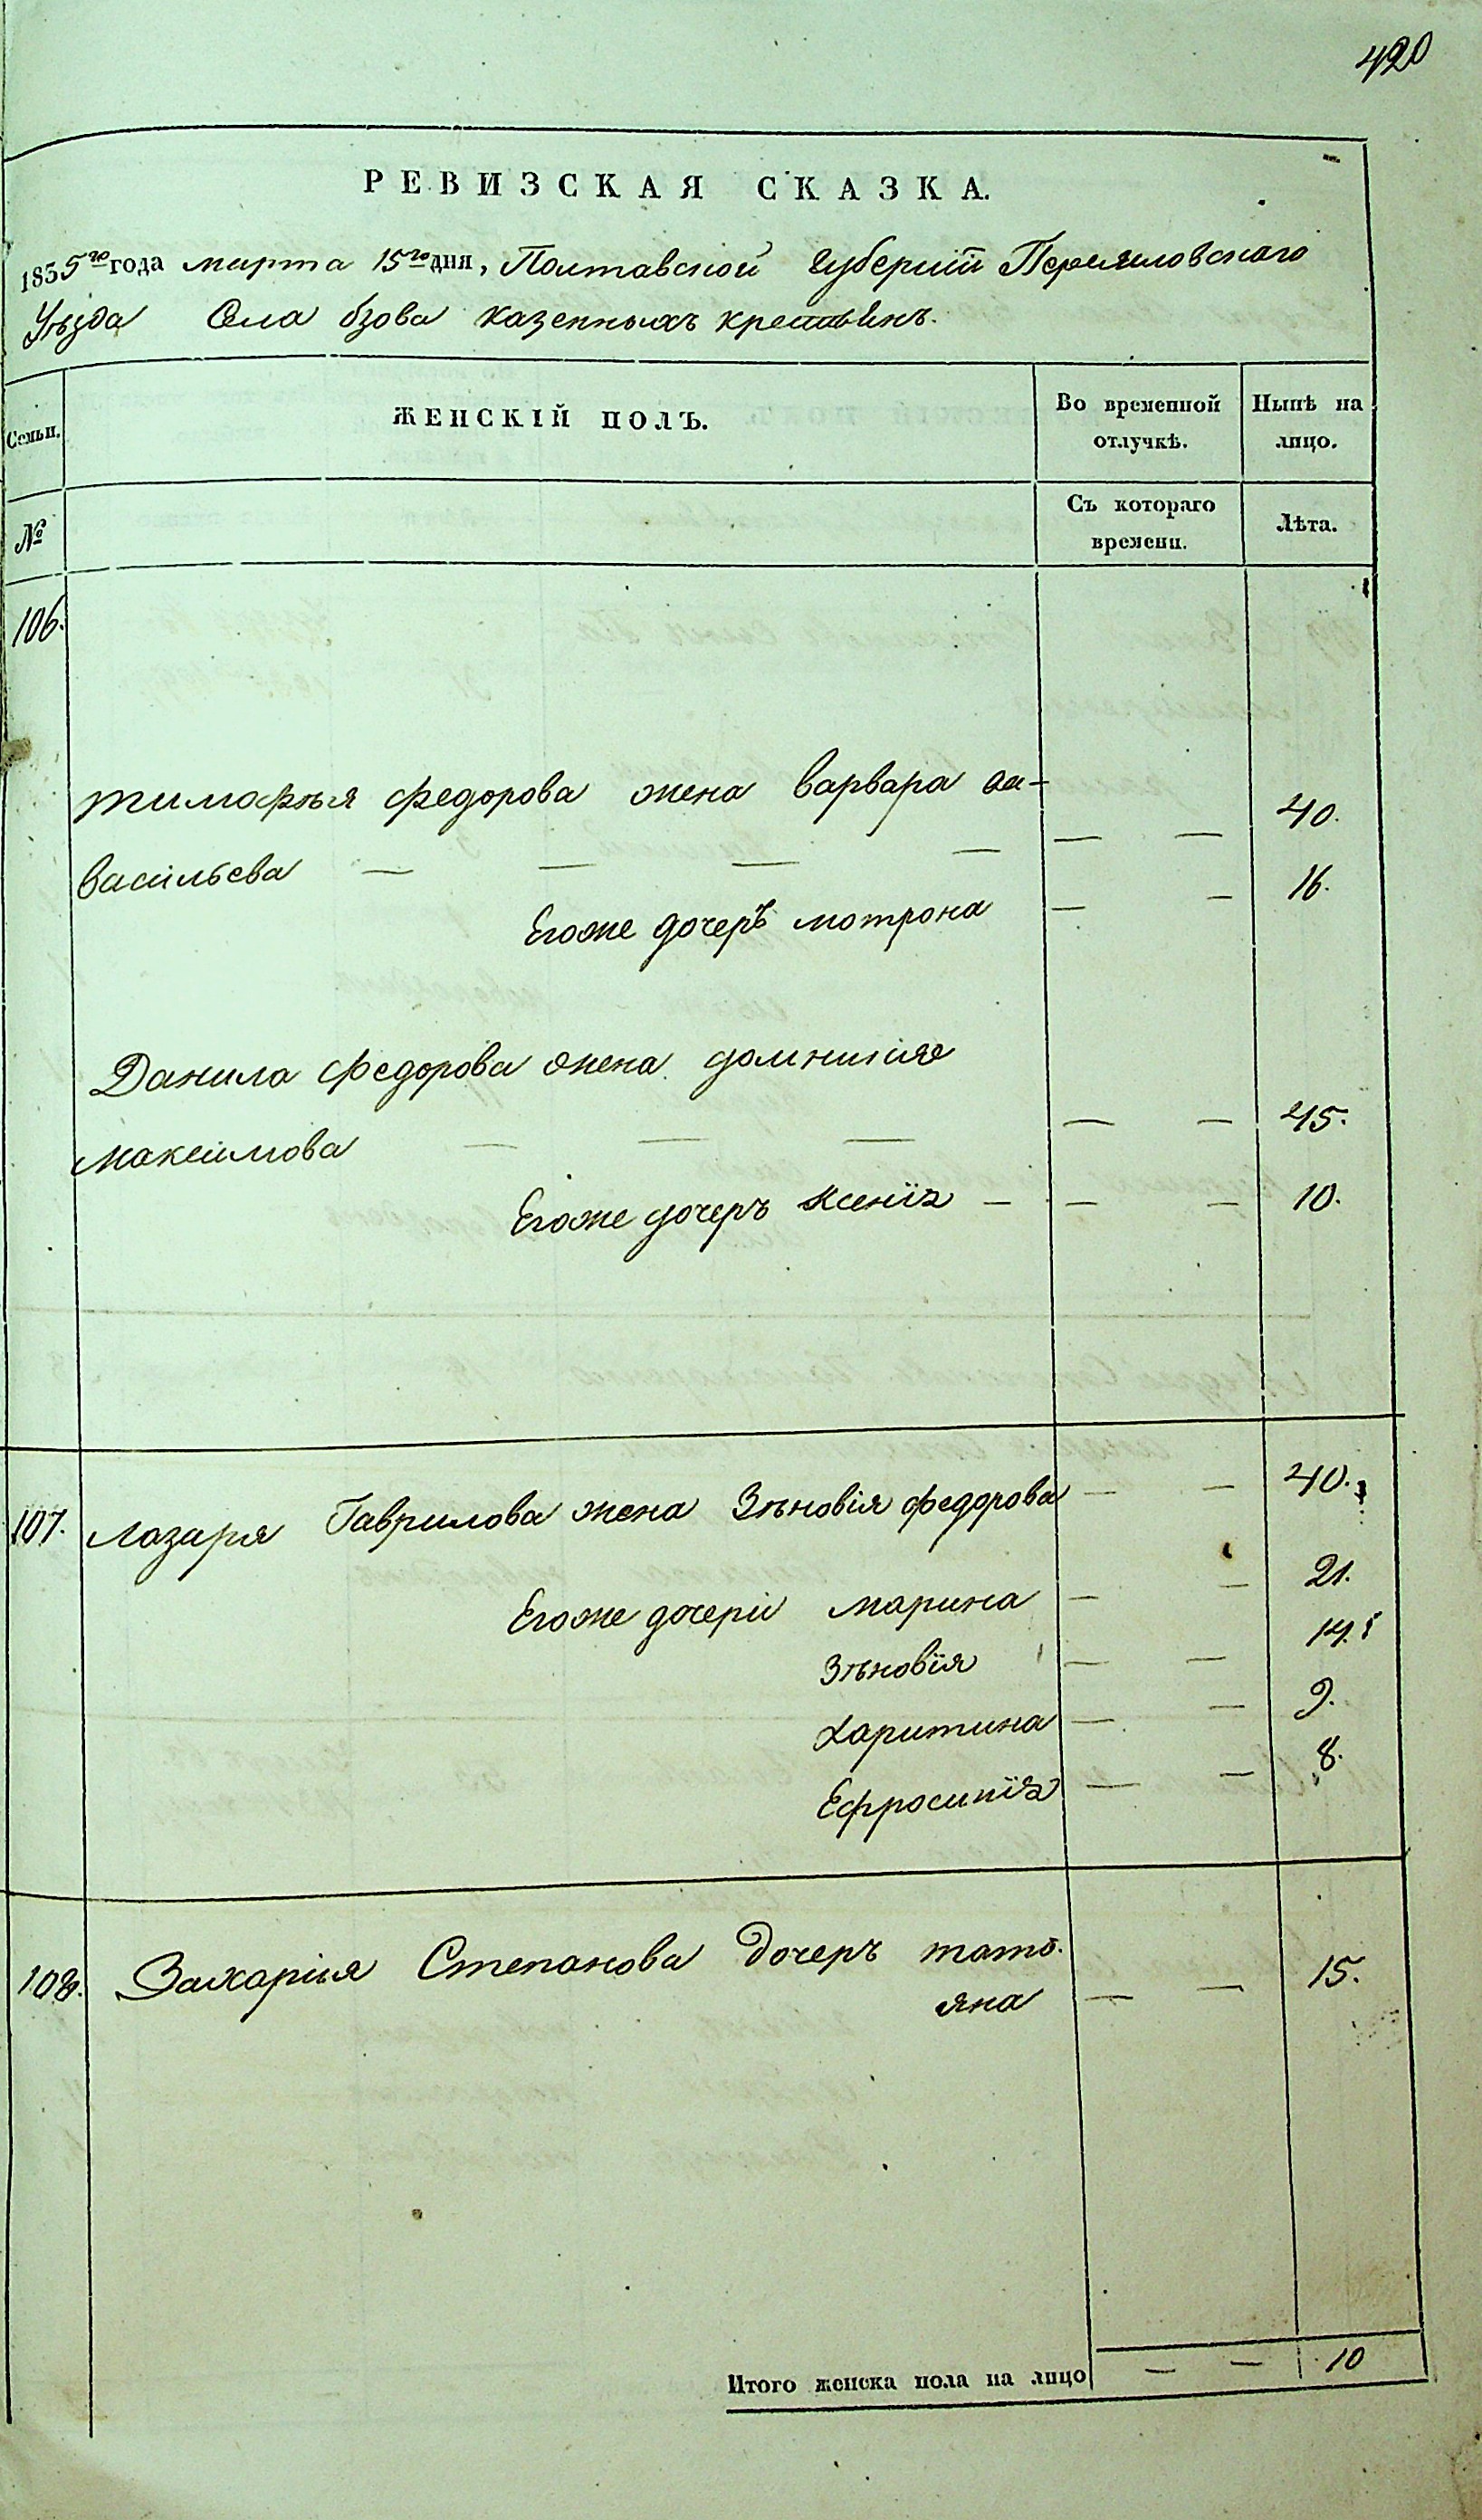 420
РЕВИЗСКАЯ СКАЗКА.
1835го года марта 15го дня, Полтавской Губерніи Переяловского
Уѣзда Села бзова казенныхъ крестьянъ.
Семьи. ЖЕНСКІЙ ПОЛЪ. Во временной отлучкѣ. Нынѣ на лицо.
№ Съ котораго времени. Лѣта.
106.
тимофѣя федорова жена варвара ва-
васильева — — — — — — 40.
Егоже дочеръ мотрона — — 16.
Данила федорова жена домникія
максимова — — — — — 45.
Егоже дочеръ Ксенія — — — 10.
107. Лазаря Гаврилова жена Зѣновія федорова — — 40.
Егоже дочери марина — — 21.
Зѣновія — — 14.
Харитина — — 9.
Ефросинія — — 8.
108. Захарія Степанова дочеръ татѣ
яна — — 15.
Итого женска пола на лицо — — 10